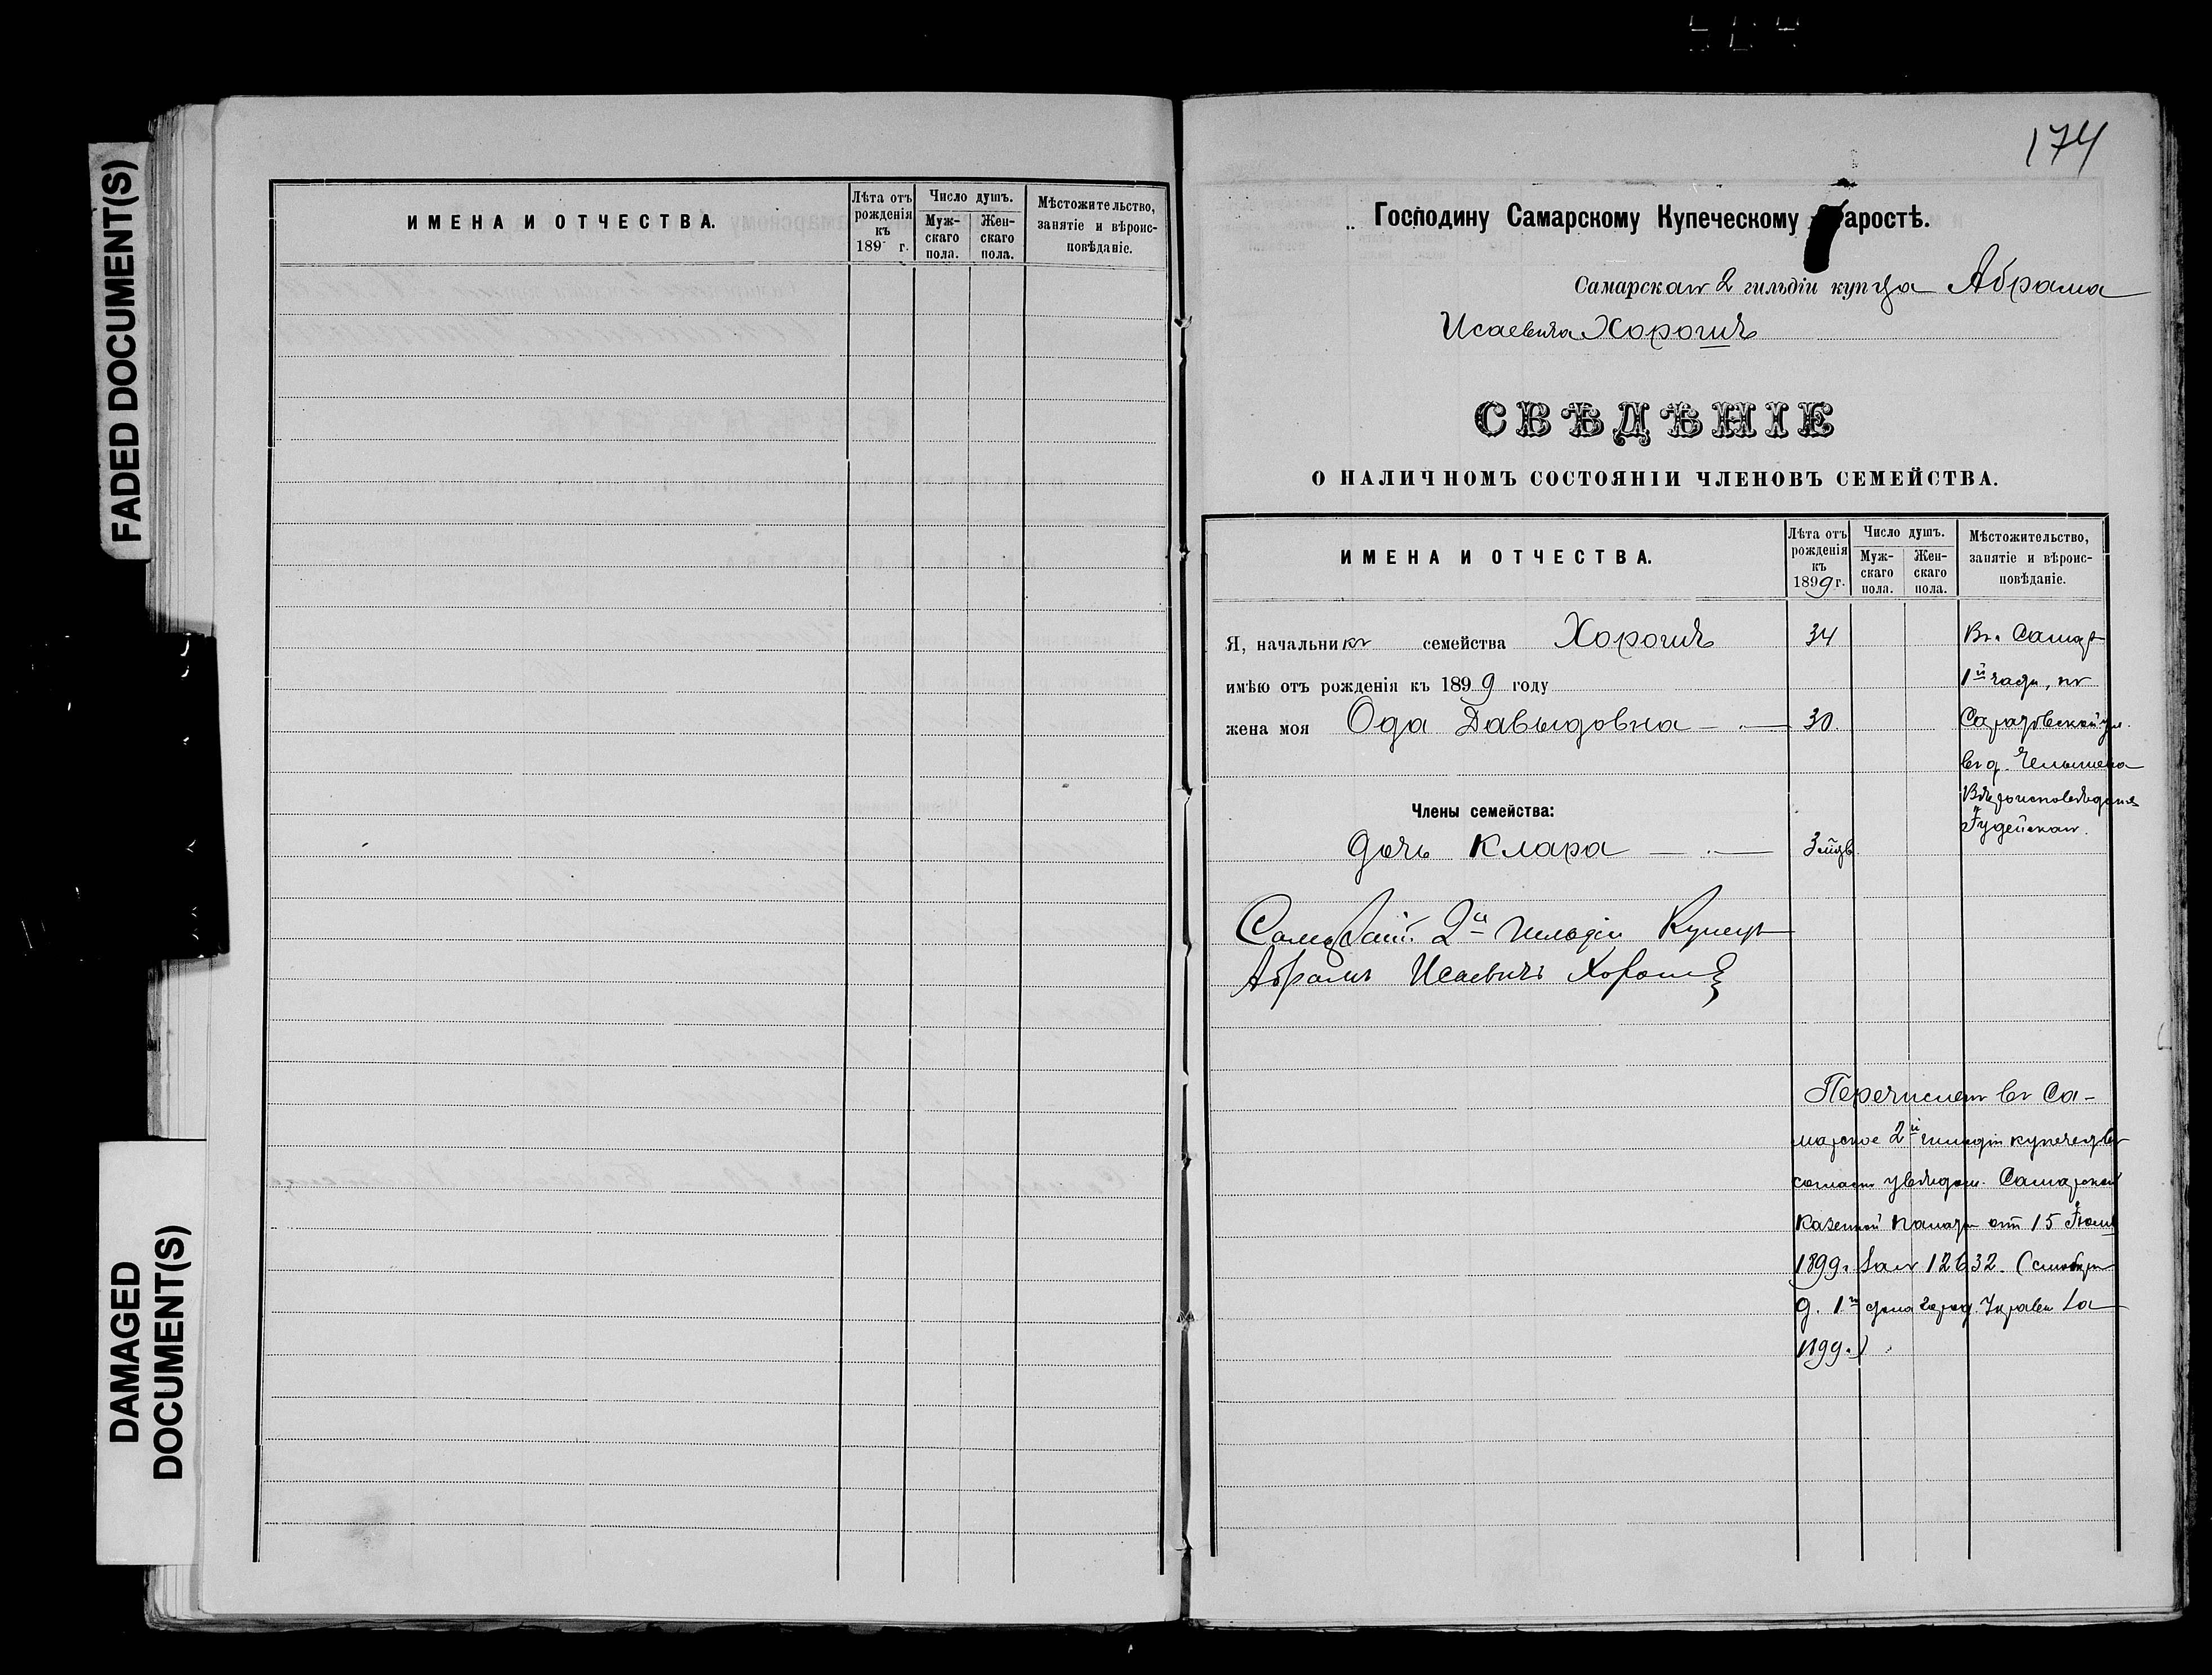 FADED DOCUMENT(S)
DAMAGED DOCUMENT(S)
ИМЕНА И ОТЧЕСТВА.
Лѣта отъ рожденія къ 189 г.
Число душъ.
Мужскаго пола.
Женскаго пола.
Мѣстожительство, занятіе и вѣроисповѣданіе.
174
Господину Самарскому Купеческому Старостѣ.
Самарскаго 2 гильдіи купца Абрама
Исаевича Хорошъ
СВѢДѢНІЕ
О НАЛИЧНОМЪ СОСТОЯНІИ ЧЛЕНОВЪ СЕМЕЙСТВА.
ИМЕНА И ОТЧЕСТВА.
Лѣта отъ рожденія къ 1899 г.
Число душъ.
Мужскаго пола.
Женскаго пола.
Мѣстожительство, занятіе и вѣроисповѣданіе.
Я, начальникъ семейства Хорошъ 34
имѣю отъ рожденія къ 1899 году
жена моя Ода Давыдовна 30.
Члены семейства:
дочь Клара
Въ Самарѣ
1й части, по
Саратовской ул.
въ д. Челышева
Вѣроисповѣданія
Іудейскаго.
2й Гильдіи Купецъ
Абрамъ Исаевичъ Хорошъ
Перечисленъ въ Са-
марское 2й гильдіи купечество
согласно увѣдом. Самарской
Казенной палаты от 15 Іюля
1899 г. за № 12632. (
д. 1го стола город. Управы за
1899 г.)